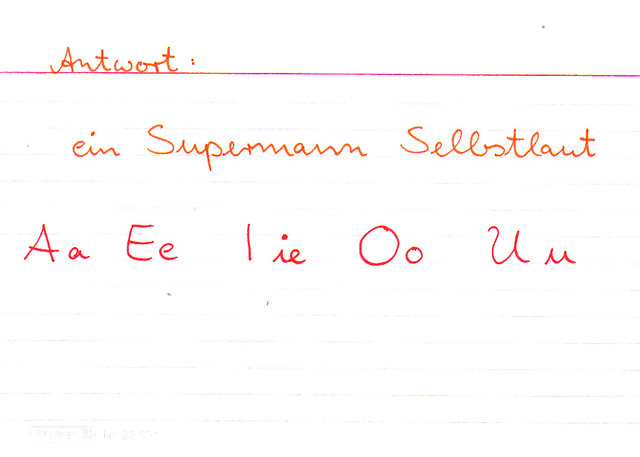 Antwort:
ein Supermann Selbstlaut
Aa Ee I ie Oo Uu